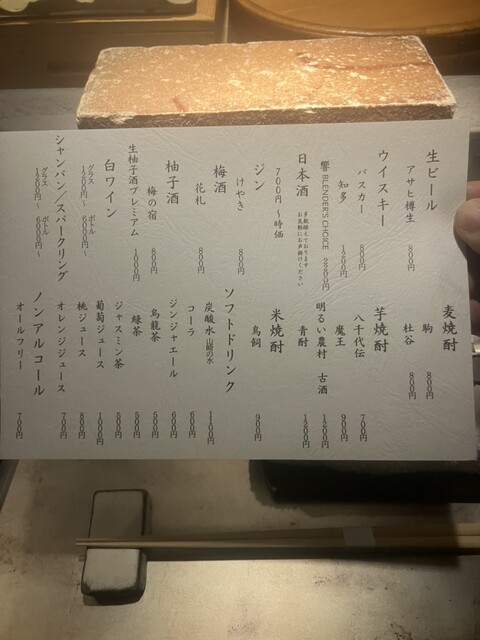 生ビール
アサヒ樽生 800円
ウイスキー
バスカー 800円
知多 1200円
響 BLENDER'S CHOICE
日本酒 多数揃えております
お気軽にお声掛けください
700円〜時価
ジン
けやき 800円
梅酒
花札 800円
柚子酒
梅の宿 800円
生柚子酒プレミアム 1000円
白ワイン
グラス ボトル
1200円〜 6000円〜
シャンパン／スパークリング
グラス ボトル
1500円〜 6000円〜
麦焼酎
駒 800円
杜谷 800円
芋焼酎
八千代伝 700円
魔王 900円
明るい農村 古酒 1200円
青酎 1200円
米焼酎
鳥飼 900円
ソフトドリンク
炭酸水 山崎の水 1100円
コーラ 600円
ジンジャエール 600円
烏龍茶 500円
緑茶 500円
ジャスミン茶 500円
葡萄ジュース 1000円
桃ジュース 800円
オレンジジュース 700円
ノンアルコール
オールフリー 700円